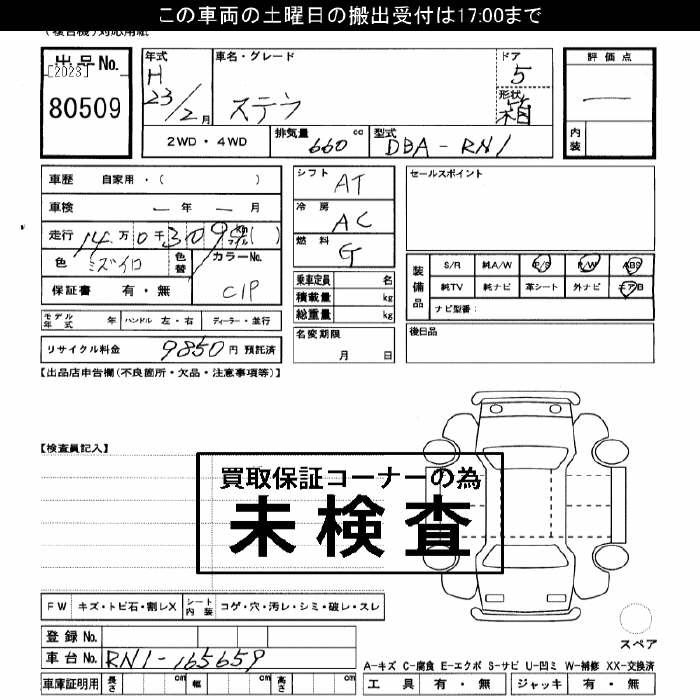 この車両の土曜日の搬出受付は17:00まで
(複合機)対応用紙
出品No. 年式 車名・グレード ドア 評価点
[2023] H 5
80509 23/2月 ステラ 形状 箱 —
2WD・4WD 排気量 660 cc 型式 DBA-RN1 内装
車歴 自家用・( ) シフト AT セールスポイント
車検 — 年 — 月 冷房 AC
走行 14万0千309 km マイル ( ) 燃料 G
色 ミズイロ 色替 カラーNo. C1P
保証書 有・無
乗車定員 名
積載量 kg
総重量 kg
装備品 S/R 純A/W P/S P/W ABS
純TV 純ナビ 革シート 外ナビ エアB
ナビ型番:
モデル年式 年 ハンドル 左・右 ディーラー・並行 名変期限 月 日 後日品
リサイクル料金 9850円 預託済
【出品店申告欄(不良箇所・欠品・注意事項等)】
【検査員記入】
買取保証コーナーの為
未検査
FW キズ・トビ石・割レX シート内装 コゲ・穴・汚レ・シミ・破レ・スレ
登録No.
車台No. RN1-165659
スペア
A-キズ C-腐食 E-エクボ S-サビ U-凹ミ W-補修 XX-交換済
車庫証明用 長さ cm 幅 cm 高さ cm 工具 有・無 ジャッキ 有・無